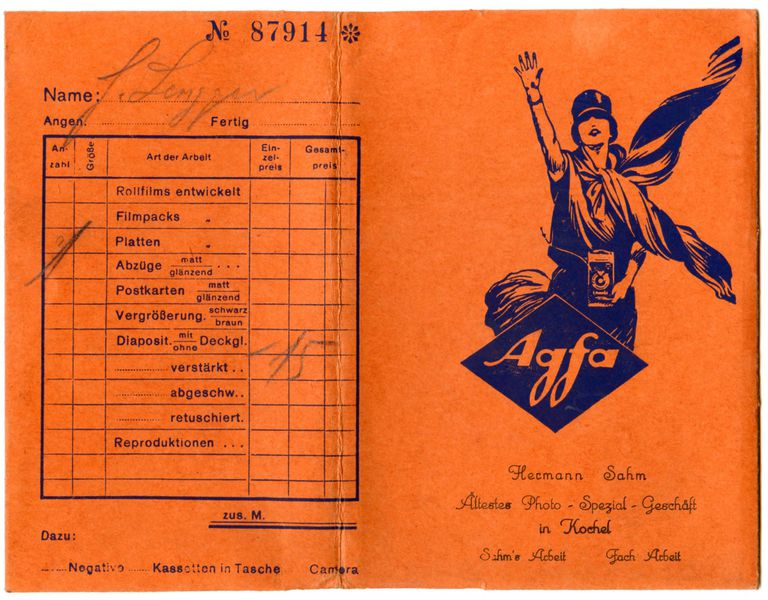 № 87914 ✼
Name:
Angen. Fertig
An-zahl Größe Art der Arbeit Ein-zel-preis Gesamt-preis
Rollfilms entwickelt
Filmpacks „
Platten „
Abzüge matt glänzend . . .
Postkarten matt glänzend
Vergrößerung. schwarz braun
Diaposit. mit ohne Deckgl.
verstärkt . .
-15
abgeschw. .
retuschiert.
Reproduktionen . . .
zus. M.
Dazu:
Negative Kassetten in Tasche Camera
Agfa
Hermann Sahm
Ältestes Photo - Spezial - Geschäft
in Kochel
Sahm's Arbeit Fach Arbeit